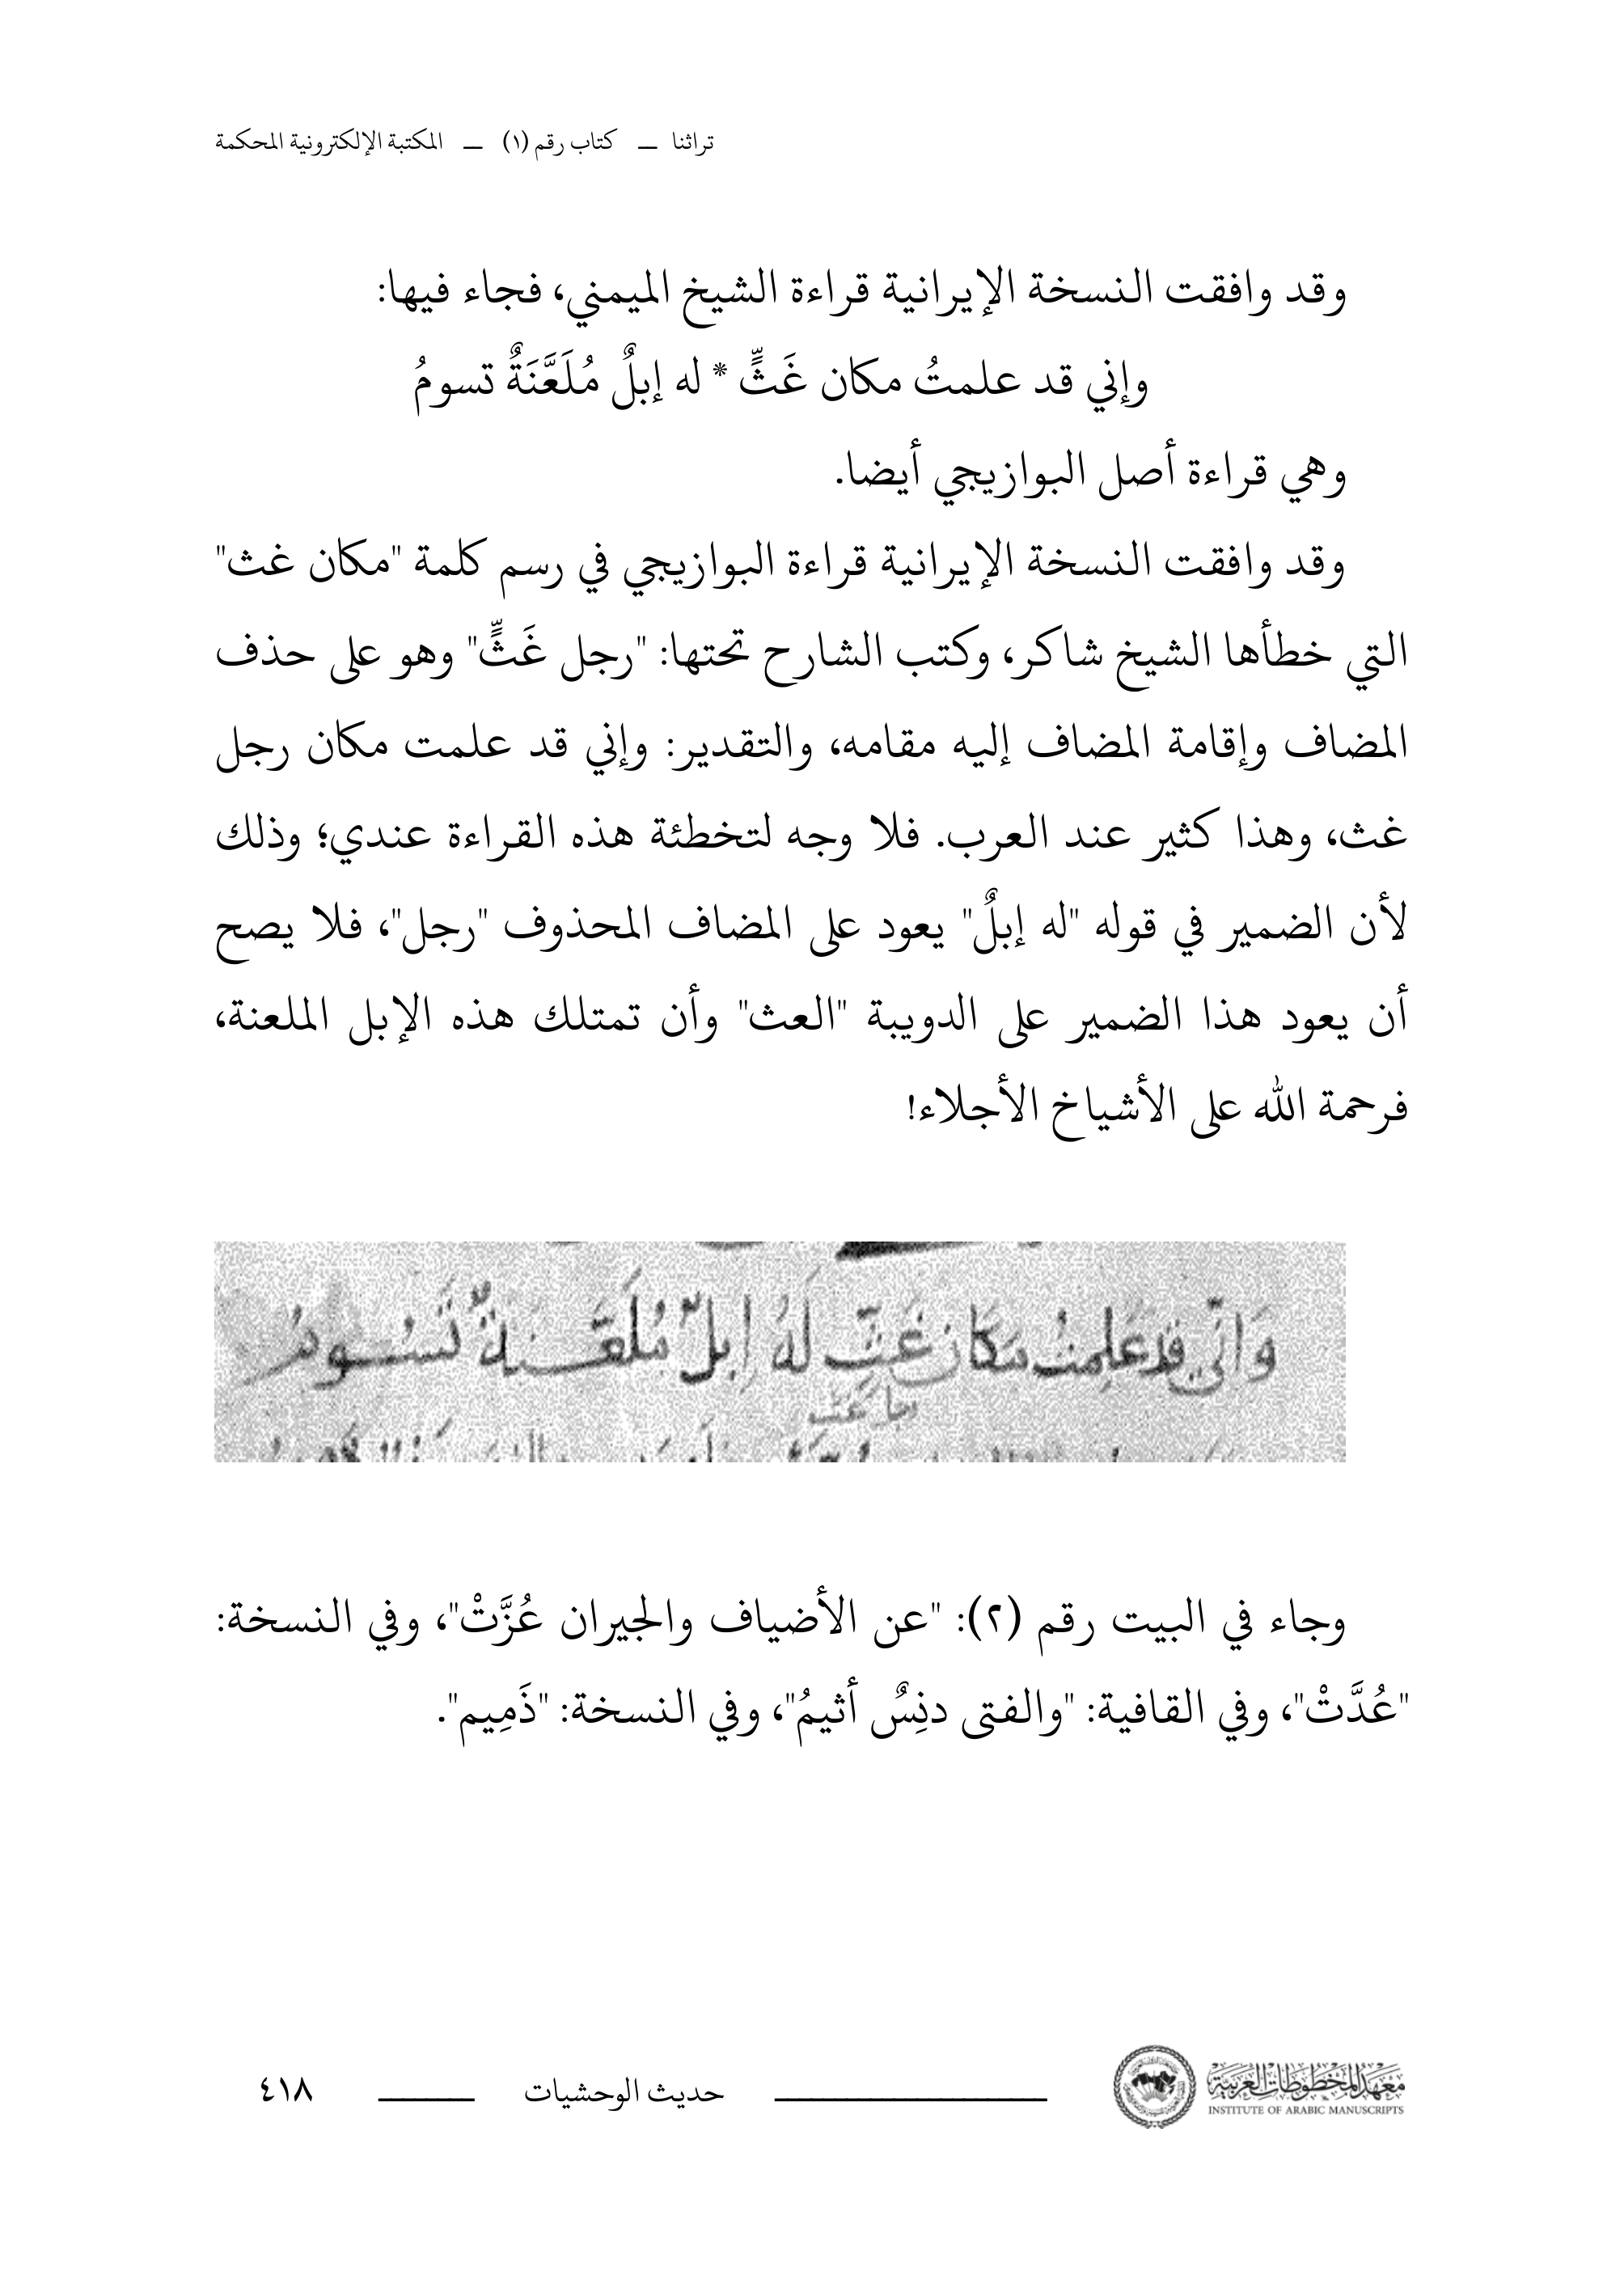 تراثنا — كتاب رقم (١) — المكتبة الإلكترونية المحكمة
وقد وافقت النسخة الإيرانية قراءة الشيخ الميمني، فجاء فيها:
وإني قد علمتُ مكان غَثٍّ * له إبلٌ مُلَعَّنَةٌ تسومُ
وهي قراءة أصل البوازيجي أيضا.
وقد وافقت النسخة الإيرانية قراءة البوازيجي في رسم كلمة "مكان غث"
التي خطأها الشيخ شاكر، وكتب الشارح تحتها: "رجل غَثٍّ" وهو على حذف
المضاف وإقامة المضاف إليه مقامه، والتقدير: وإني قد علمت مكان رجل
غث، وهذا كثير عند العرب. فلا وجه لتخطئة هذه القراءة عندي؛ وذلك
لأن الضمير في قوله "له إبلٌ" يعود على المضاف المحذوف "رجل"، فلا يصح
أن يعود هذا الضمير على الدويبة "العث" وأن تمتلك هذه الإبل الملعنة،
فرحمة الله على الأشياخ الأجلاء!
وَانّي قد عَلِمتُ مَكانَ غَثٍّ لَهُ اِبلٌ مُلَعَّنةٌ تَسُومُ
وجاء في البيت رقم (٢): "عن الأضياف والجيران عُزَّتْ"، وفي النسخة:
"عُدَّتْ"، وفي القافية: "والفتى دنِسٌ أثيمُ"، وفي النسخة: "ذَمِيم".
معهد المخطوطات العربية
INSTITUTE OF ARABIC MANUSCRIPTS
حديث الوحشيات
٤١٨